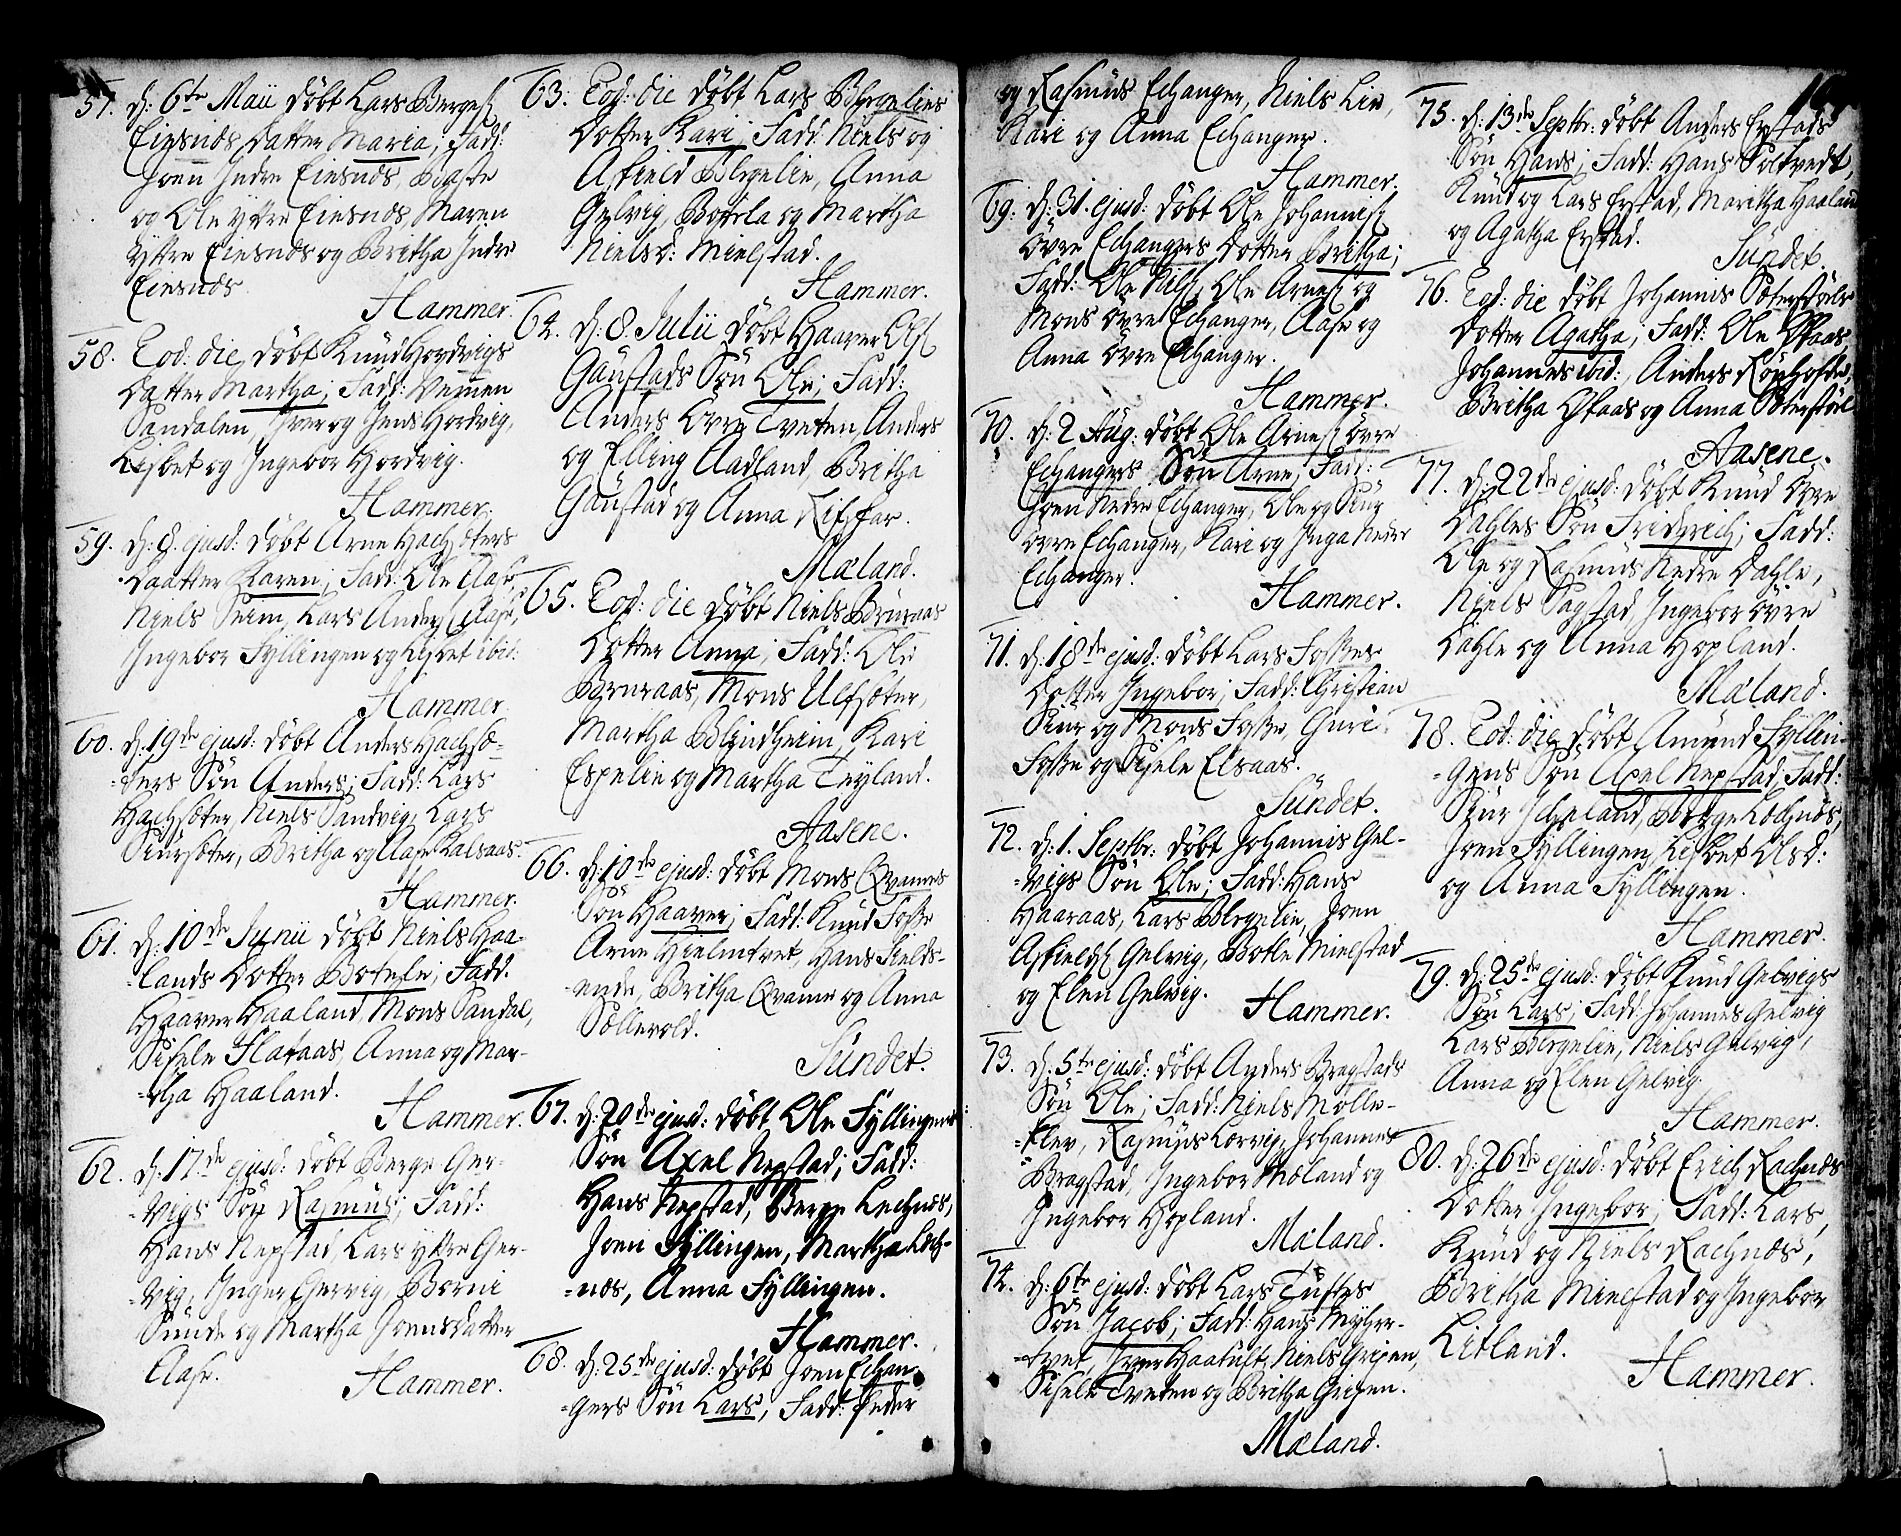 57. d: 6te Maii döbt Lars Berges
Einsnæs Datter Maria; Fadd:
Joen Indre Einsnæs,
og Ole Yttre Einsnæs, Maren
Yttre Einsnæs og Britha Indre
Einsnæs
Hammer.
58. Eod: die döbt Knud Hordvigs
Datter Martha; Fadd:
Sandalen, Iver og Jens Hordvig,
Lisbet og Ingebor Hordvig.
Hammer.
59. d: 8. ejusd: döbt Arne Hachsöters
Daatter Karen; Fadd: Ole Aase,
Niels Seim, Lars Anders Aase,
Ingebor Syllingen og Lisbet ibid:
Hammer.
60. d: 19de ejusd: döbt Anders Hachsö=
=ters Sön Anders; Fadd: Lars
Hachsöter, Niels Sandvig, Lars
Siursöter, Britha og Aase Kalsaas.
Hammer.
61. d: 10de Junii döbt Niels Haa=
=lands Dotter Botele; Fadd.
Haaver Haaland, Mons Sandal,
Sisele Flataas, Anna og Mar-
=tha Haaland.
Hammer.
62. d: 17de ejusd: döbt Berge Ger-
=vigs Sön Rasmus; Fadd:
Hans Nepstad, Lars Yttre Ger-
vig, Inger Gervig, Borni
Sunde og Martha Joensdatter
Aase.
Hammer.
63. Eod: die döbt Lars Blegelies
Dotter Kari, Fadd: Niels og
Askield Blegelie, Anna
Gelvig, Botele og Martha
Nielsd: Mielstad.
Hammer.
64. d: 8. Julii döbt Haaver Ols
Gaustads Sön Ole; Fadd:
Anders Övre Tveten, Anders
og Elling Aadland, Britha
Gaustad og Anna Risfar.
Mæland.
65. Eod: die döbt Niels Bruraas
Dotter Anna; Fadd: Ole
Bruraas, Mons Ulfsöter,
Martha Blindheim, Kari
Espelie og Martha Teyland.
Aasene.
66. d: 10de ejusd: döbt Mons Qvames
Sön Haaver; Fadd: Knud Fosse
Arne Hielmtvet, Hans Kields-
=ende, Britha Qvame og Anna
Söllevold.
Sundet.
67. d: 20de ejusd: döbt Ole Syllingens
Sön Axel Nepstad; Fadd:
Hans Nepstad, Berge Lechnæs,
Joen Syllingen, Martha Lech-
=næs, Anna Syllingen.
Hammer.
68. d: 25de ejusd: döbt Joen Echan-
=gers Sön Lars, Fadd: Peder
og Rasmus Echanger, Niels Lie,
Kari og Anna Echanger.
Hammer.
69. d: 31. ejusd: döbt Ole Johannes
Övre Echangers Dotter Britha;
Fadd: Ole Nils, Ole Arnes og
Mons Övre Echanger, Aase og
Anna Övre Echanger.
Hammer.
70. d: 2 Aug: döbt Ole Arnes Övre
Echangers Sön Arne; Fadd:
Joen Nedre Echanger, Ole og Siur
Övre Echanger, Kari og Inga Nedre
Echanger.
Hammer.
71. d: 18de ejusd: döbt Lars Fosses
Dotter Ingebor; Fadd: Christian
Siur og Mons Fosse, Guri
Fosse og Sisele Elsaas.
Sundet.
72. d: 1. Septbr: döbt Johannis Gel-
=vigs Sön Ole; Fadd: Hans
Haaraas, Lars Blegelie, Joen
Askields Gelvig, Botle Mielstad
og Elen Gelvig.
Hammer.
73. d: 5te ejusd: döbt Anders Bragstads
Sön Ole; Fadd: Niels Mölle-
=klev, Rasmus Lorvig, Johannes
Bragstad, Ingebor Mæland og
Ingebor Hopland.
Mæland.
74. d: 6te ejusd: döbt Lars Tuftes
Sön Jacob; Fadd: Hans
=tvet, Iver Haatuft, Niels Grisen,
Sisele Tveten og Britha Grisen.
Mæland.
75. d: 13de Septbr: döbt Anders Erstads
Sön Hans; Fadd: Hans Soltvedt,
Knud og Lars Erstad, Maritha Haaland
og Agatha Erstad.
Sundet.
76. Eod: die döbt Johannis Söterstöls
Dotter Agatha; Fadd: Ole Öfaas,
Johannes ibid:, Anders
Britha Öfaas og Anna Söterstöel
Aasene.
77. d: 22de ejusd: döbt Knud Övre
Dahles Sön Friderich; Fadd:
Ole og Rasmus Nedre Dahle,
Niels Sagstad, Ingebor Övre
Dahle og Anna Hopland.
Mæland.
78. Eod: die döbt Amund Syllin-
=gens Sön Axel Nepstad; Fadd:
Siur Berge Lechnæs,
Joen Syllingen, Lisbet Olsd:
og Anna Syllingen.
Hammer.
79. d: 25de ejusd: döbt Knud Gelvigs
Sön Lars; Fadd: Johannes Gelvig
Lars Blegelie, Niels Gelvig,
Anna og Elen Gelvig.
Hammer.
80. d: 26de ejusd: döbt Erich Rachnæs
Dotter Ingebor; Fadd: Lars,
Knud og Niels Rachnæs,
Britha Mielstad og Ingebor
Litland.
Hammer.